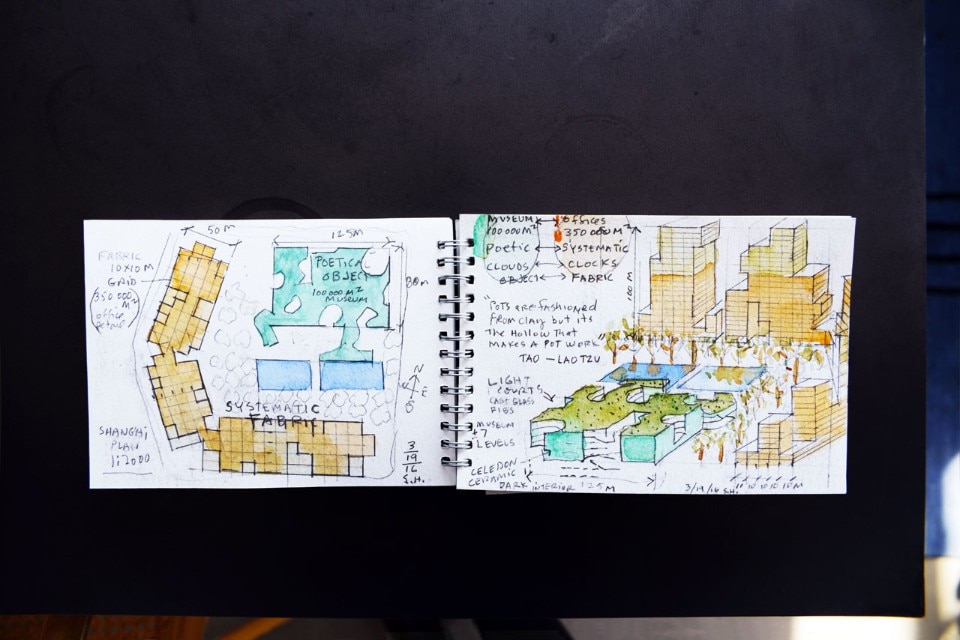 50 M
125M
FABRIC
10X10M
GRID
350 000
M²
office
POETICAL
OBJECT
100 000 M²
MUSEUM
80m
N
E
S
SYSTEMATIC
FABRIC
SHANGHAI
PLAN
1:2000
3
19
16
S.H.
MUSEUM ↔ OFFICES
100 000 M² 350 000 M²
POETIC ↔ SYSTEMATIC
CLOUDS ↔ CLOCKS
OBJECT ↔ FABRIC
100 M
"POTS ARE FASHIONED
FROM CLAY BUT ITS
THE HOLLOW THAT
MAKES A POT WORK"
TAO — LAO TZU
LIGHT
COURTS
CAST GLASS
RIBS
MUSEUM
LEVELS
CELEDON
CERAMIC
DARK INTERIOR 125M
3/19/16 S.H.
10 10 10 10 10M